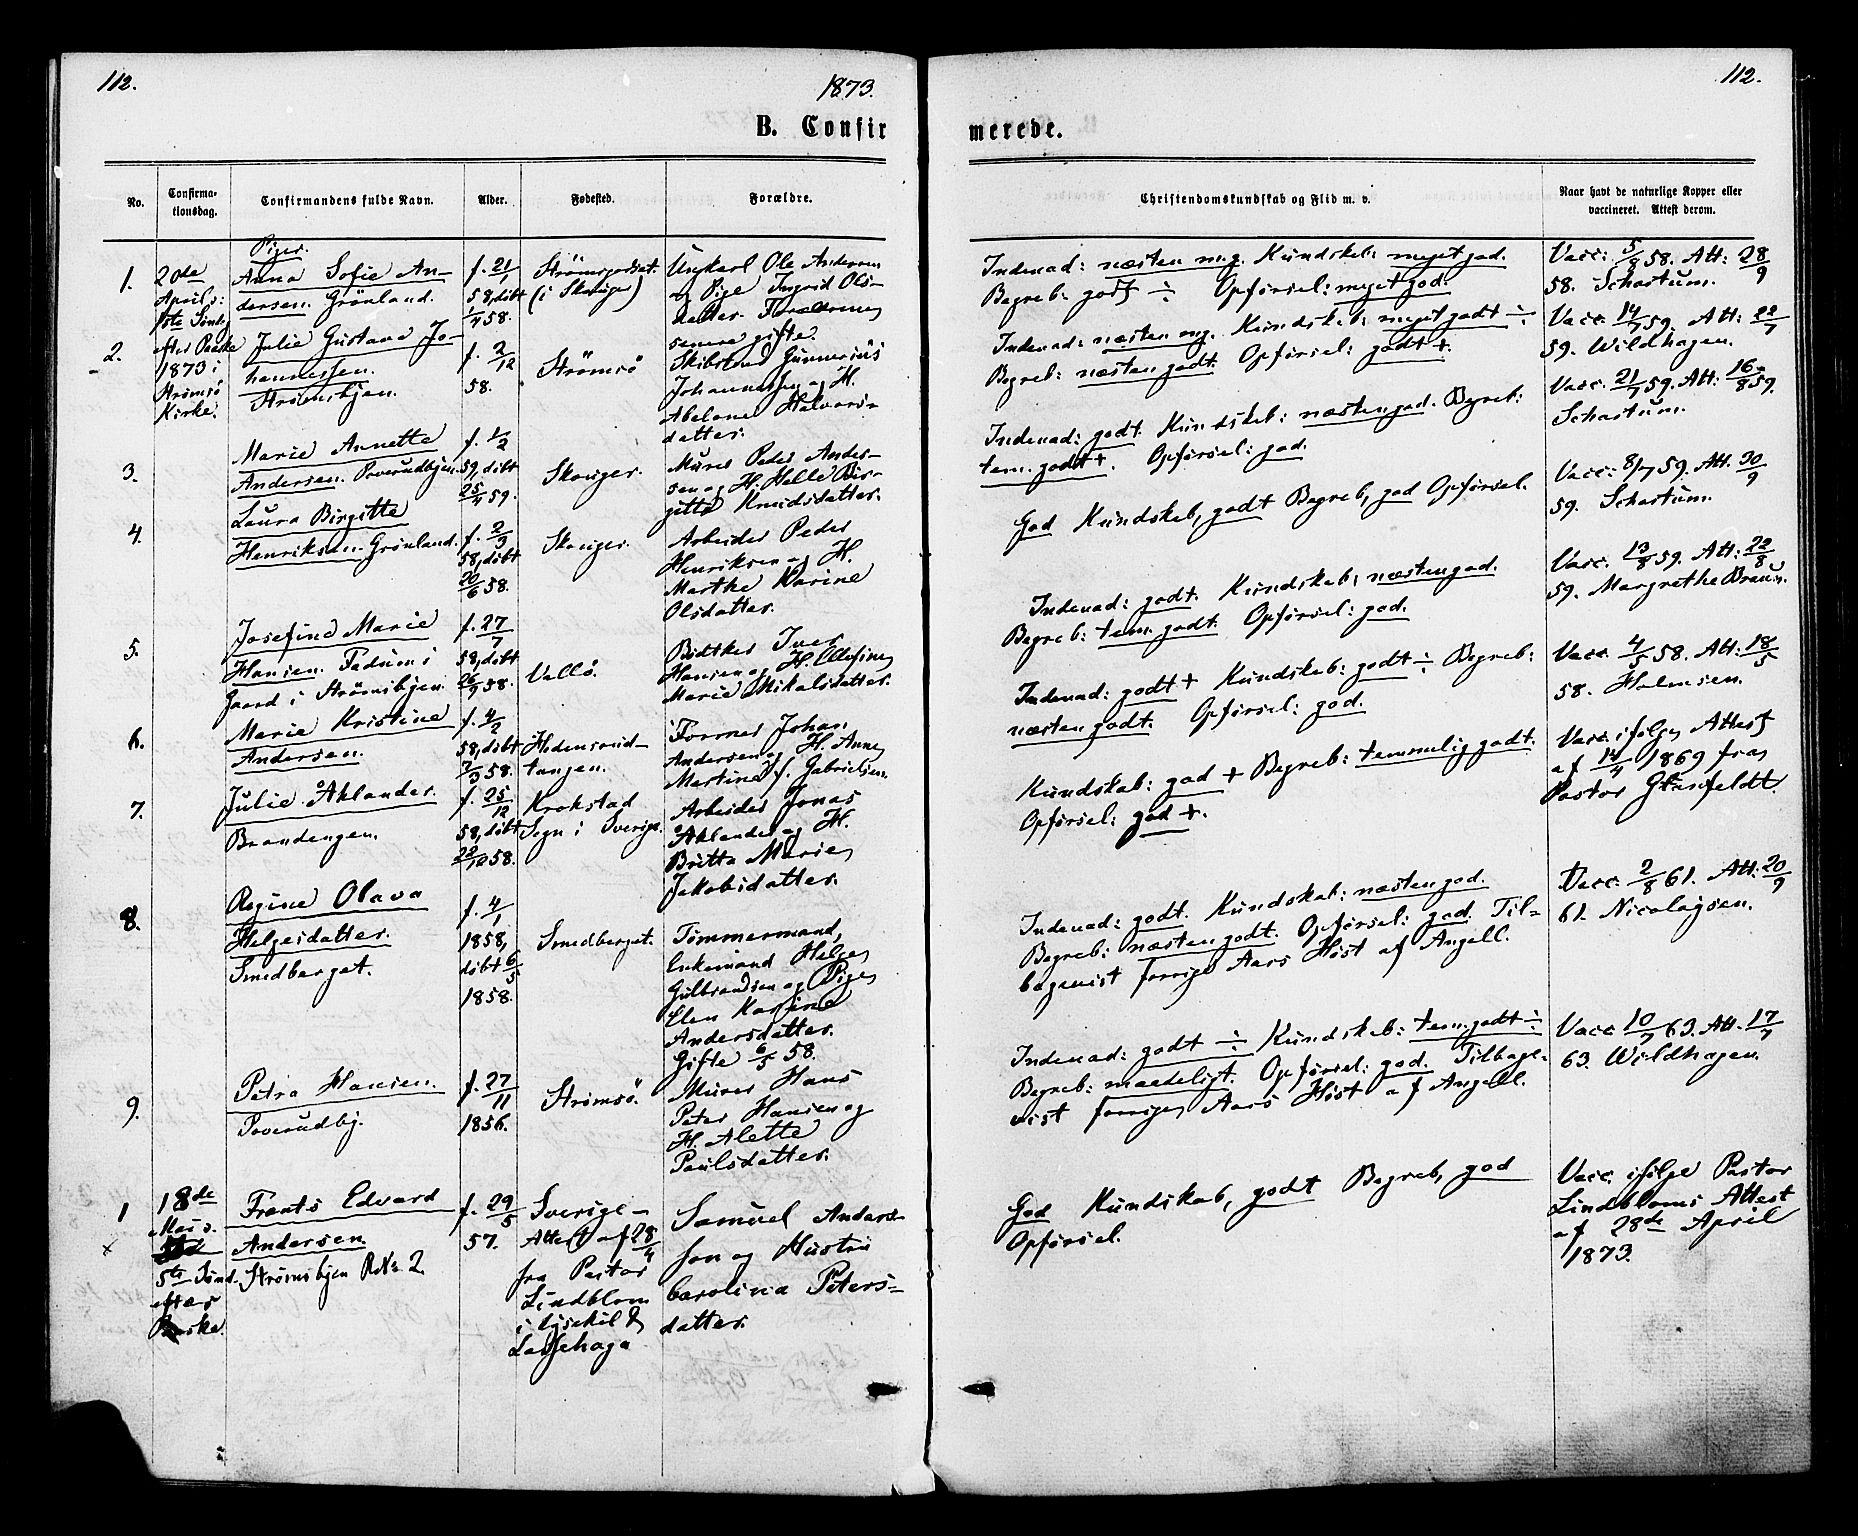 112.
1873.
112.
B. Confir
merede.
No.
Confirma-
tionsdag.
Confirmandens fulde Navn.
Alder.
Fødested.
Forældre.
Christendomskundskab og Flid m. v.
Naar havt de naturlige Kopper eller
vaccineret. Attest derom.
Piger.
1.
20de
Aprils:
1ste Sønd.
efter Paaske
1873 i
Strømsø
Kirke.
Anna Sofie An-
dersen. Grönland.
f. 21/1
58, døbt
1/4 58.
Strömsgodset.
(i Skouger)
Ungkarl Ole Andersen
og Pige Ingrid Ols-
datter. Forældrene
senere gifte.
Indenad: næsten mg. Kundskab: meget god.
Begreb: godt ÷ Opførsel: meget god.
Vacc: 5/8 58. Att: 28/9
58. Schartum.
2.
Julie Gustava Jo-
hannessen.
Strömsbjen.
f. 2/12
58.
Strömsö
Skibstmd Gunnerius
Johannesen og H.
Abelone Halvors-
datter.
Indenad: næsten mg. Kundskab: meget godt ÷
Begreb: næsten godt. Opførsel: godt +.
Vacc. 14/7 59. Att: 22/7
59. Wildhagen.
3.
Marie Annette
Andersen. Poverudbjen.
f. 1/2
59, döbt
25/4 59.
Skouger.
Murer Peder Ander-
sen og H. Helle Bir-
gitte Knudsdatter.
Indenad: godt. Kundskab: næsten god. Begreb:
tem. godt +. Opførsel: god.
Vacc: 21/7 59. Att: 16/8 59.
Schartum.
4.
Laura Birgitte
Henriksen. Grönland.
f. 2/3
58, döbt
20/6 58.
Skouger.
Arbeider Peder
Henriksen og H.
Marthe Karine
Olsdatter.
God Kundskab, godt Begreb, god Opførsel.
Vacc: 8/7 59. Att. 30/9
59. Schartum.
5.
Josefine Marie
Hansen. Fadum i
Gaard i Strömsbjen
f. 27/7
58, döbt
26/9 58.
Vallö.
Bödtker Iver
Hansen og H. Ellefine
Marie Mikalsdatter.
Indenad: godt. Kundskab: næsten god.
Begreb: tem. godt. Opførsel: god.
Vacc. 13/8 59. Att: 22/8
59. Margrethe Braun.
6.
Marie Kristine
Andersen.
f. 4/2
58, döbt
7/3 58.
Hedensrud-
tangen.
Former Johan
Andersen og H. Anne
Martine f. Gabrielsen.
Indenad: godt + Kundskab: godt ÷ Begreb:
næsten godt. Opførsel: god.
Vacc. 4/5 58. Att: 18/5
58. Holmsen.
7.
Julie Åklander.
Brandengen.
f. 25/12
58, döbt
28/12 58.
Krokstad
Sogn i Sverige.
Arbeider Jonas
Åklander og H.
Britta Marie
Jakobsdatter.
Kundskab: god + Begreb: temmelig godt.
Opførsel: god +.
Vacc. ifølge Attest
af 14/4 1869 fra
Pastor
8.
Regine Olava
Helgesdatter.
Smedberget.
f. 4/1
1858,
döbt 6/5
1858.
Smedberget.
Tømmermand,
Enkemand Helge
Gulbrandsen og Pige
Elen Karine
Andersdatter.
Gifte 6/5 58.
Indenad: godt. Kundskab: næsten god.
Begreb: næsten godt. Opførsel: god. Til-
bagevist forrige Aars Høst af Angell.
Vacc: 2/8 61. Att: 20/9
61. Nicolaysen.
9.
Petra Hansen.
Poverudbj.
f. 27/11
1856.
Strömsö.
Murer Hans
Peter Hansen og
H. Alette
Paulsdatter.
Indenad: godt ÷ Kundskab: tem. godt ÷
Begreb: maadeligt. Opførsel: god. Tilbage-
vist forrige Aars Høst af Angell.
Vacc 10/7 63. Att. 17/7
63. Wildhagen.
1
x
18de
Mai s:
5te Sønd.
efter
Paaske.
Frants Edvard
Andersen.
Strömsbjen R. No 2
f. 29/5
57.
Sverige-
Attest af 28/4
fra Pastor
Lindblom
i Lysekil &
Samuel Anders-
son og Hustru
Carolina Peters-
datter.
God Kundskab, godt Begreb, god
Opførsel.
Vacc. ifølge Pastor
Lindbloms Attest
af 28de April
1873.